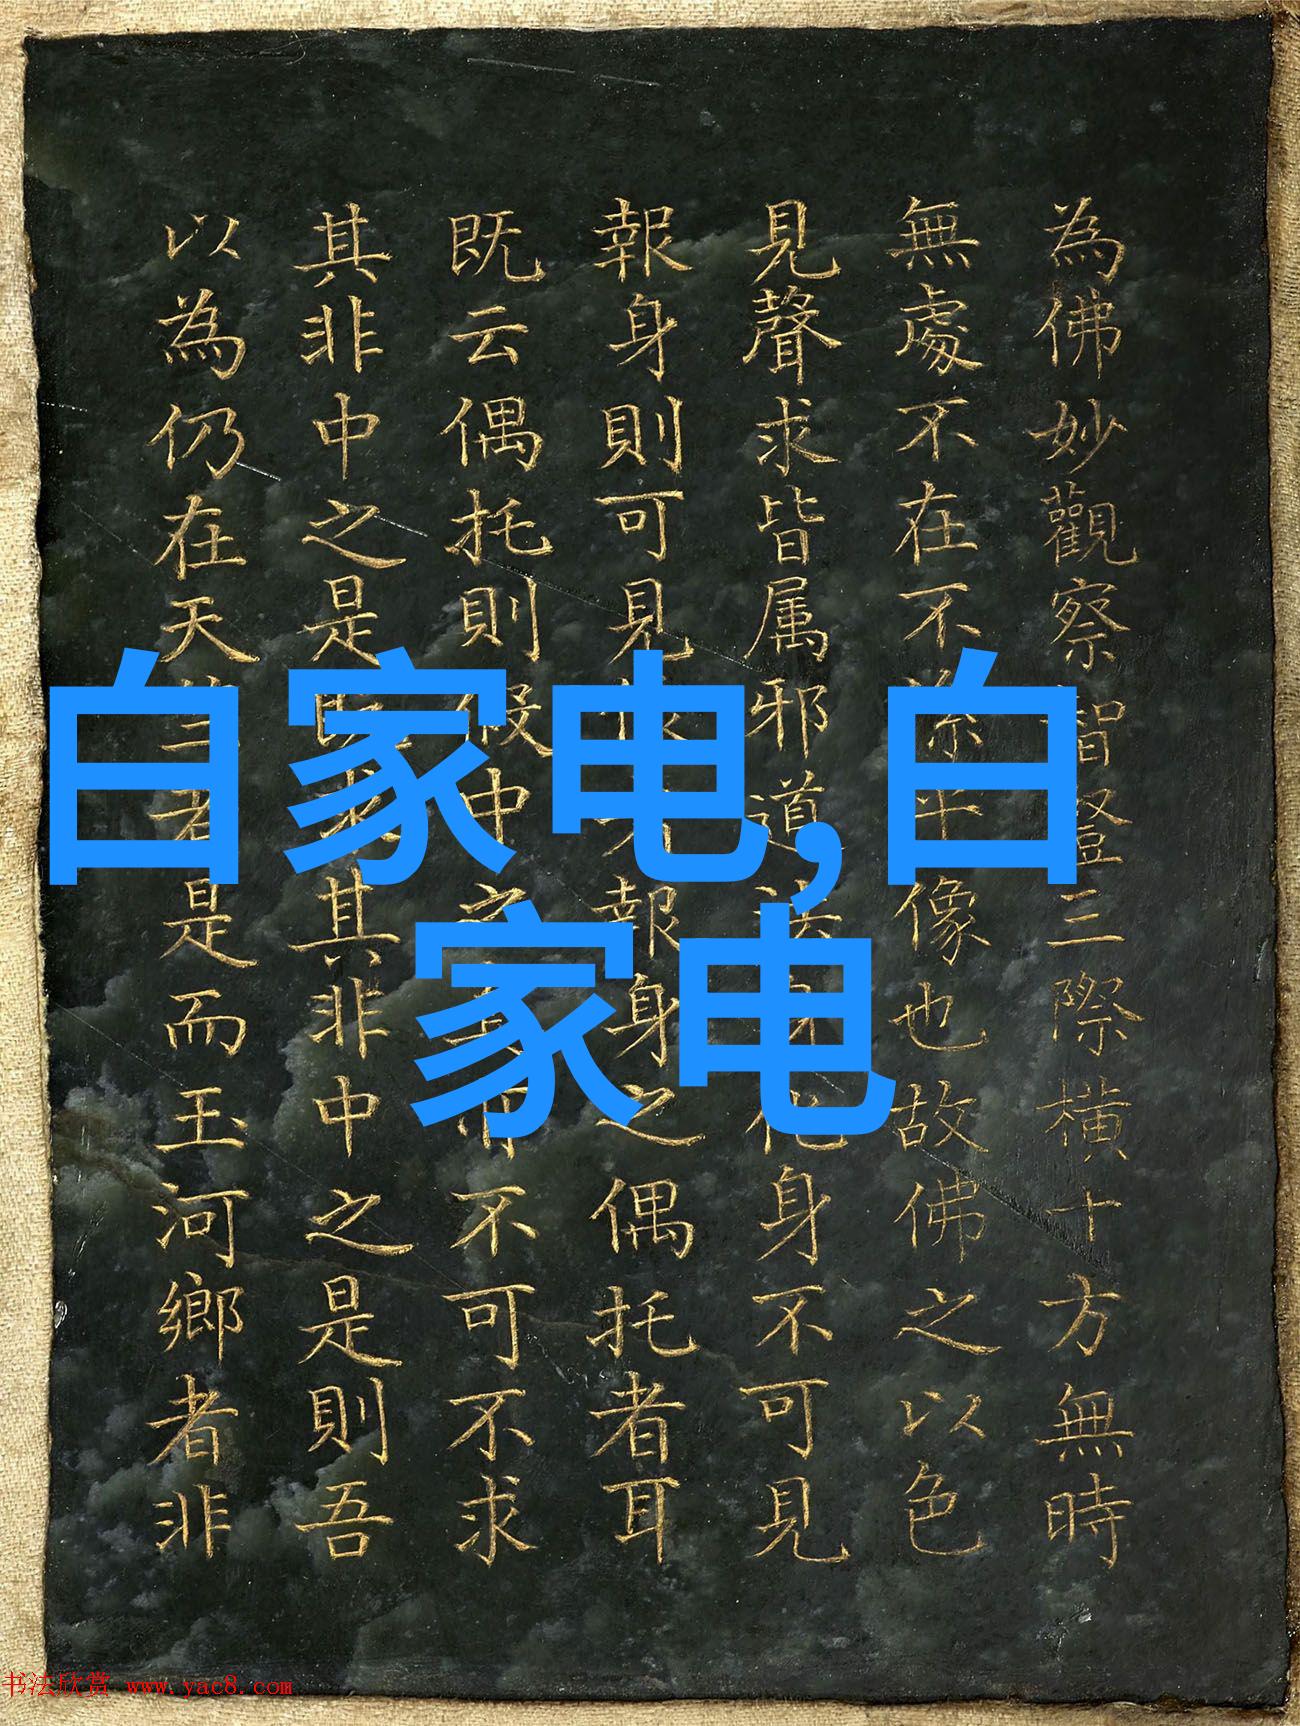 為佛妙觀察智證三際橫十方無時
無處不在不像也故佛之以色
見聲求皆属邪道身化身不可見
報身則可見報身之偶托者耳
既云偶托則假中之不可不求
其非中之是既求其非中之是則吾
以為仍在天者是而玉河鄉者非
白家电,白
家电
书法欣赏 www.yac8.com